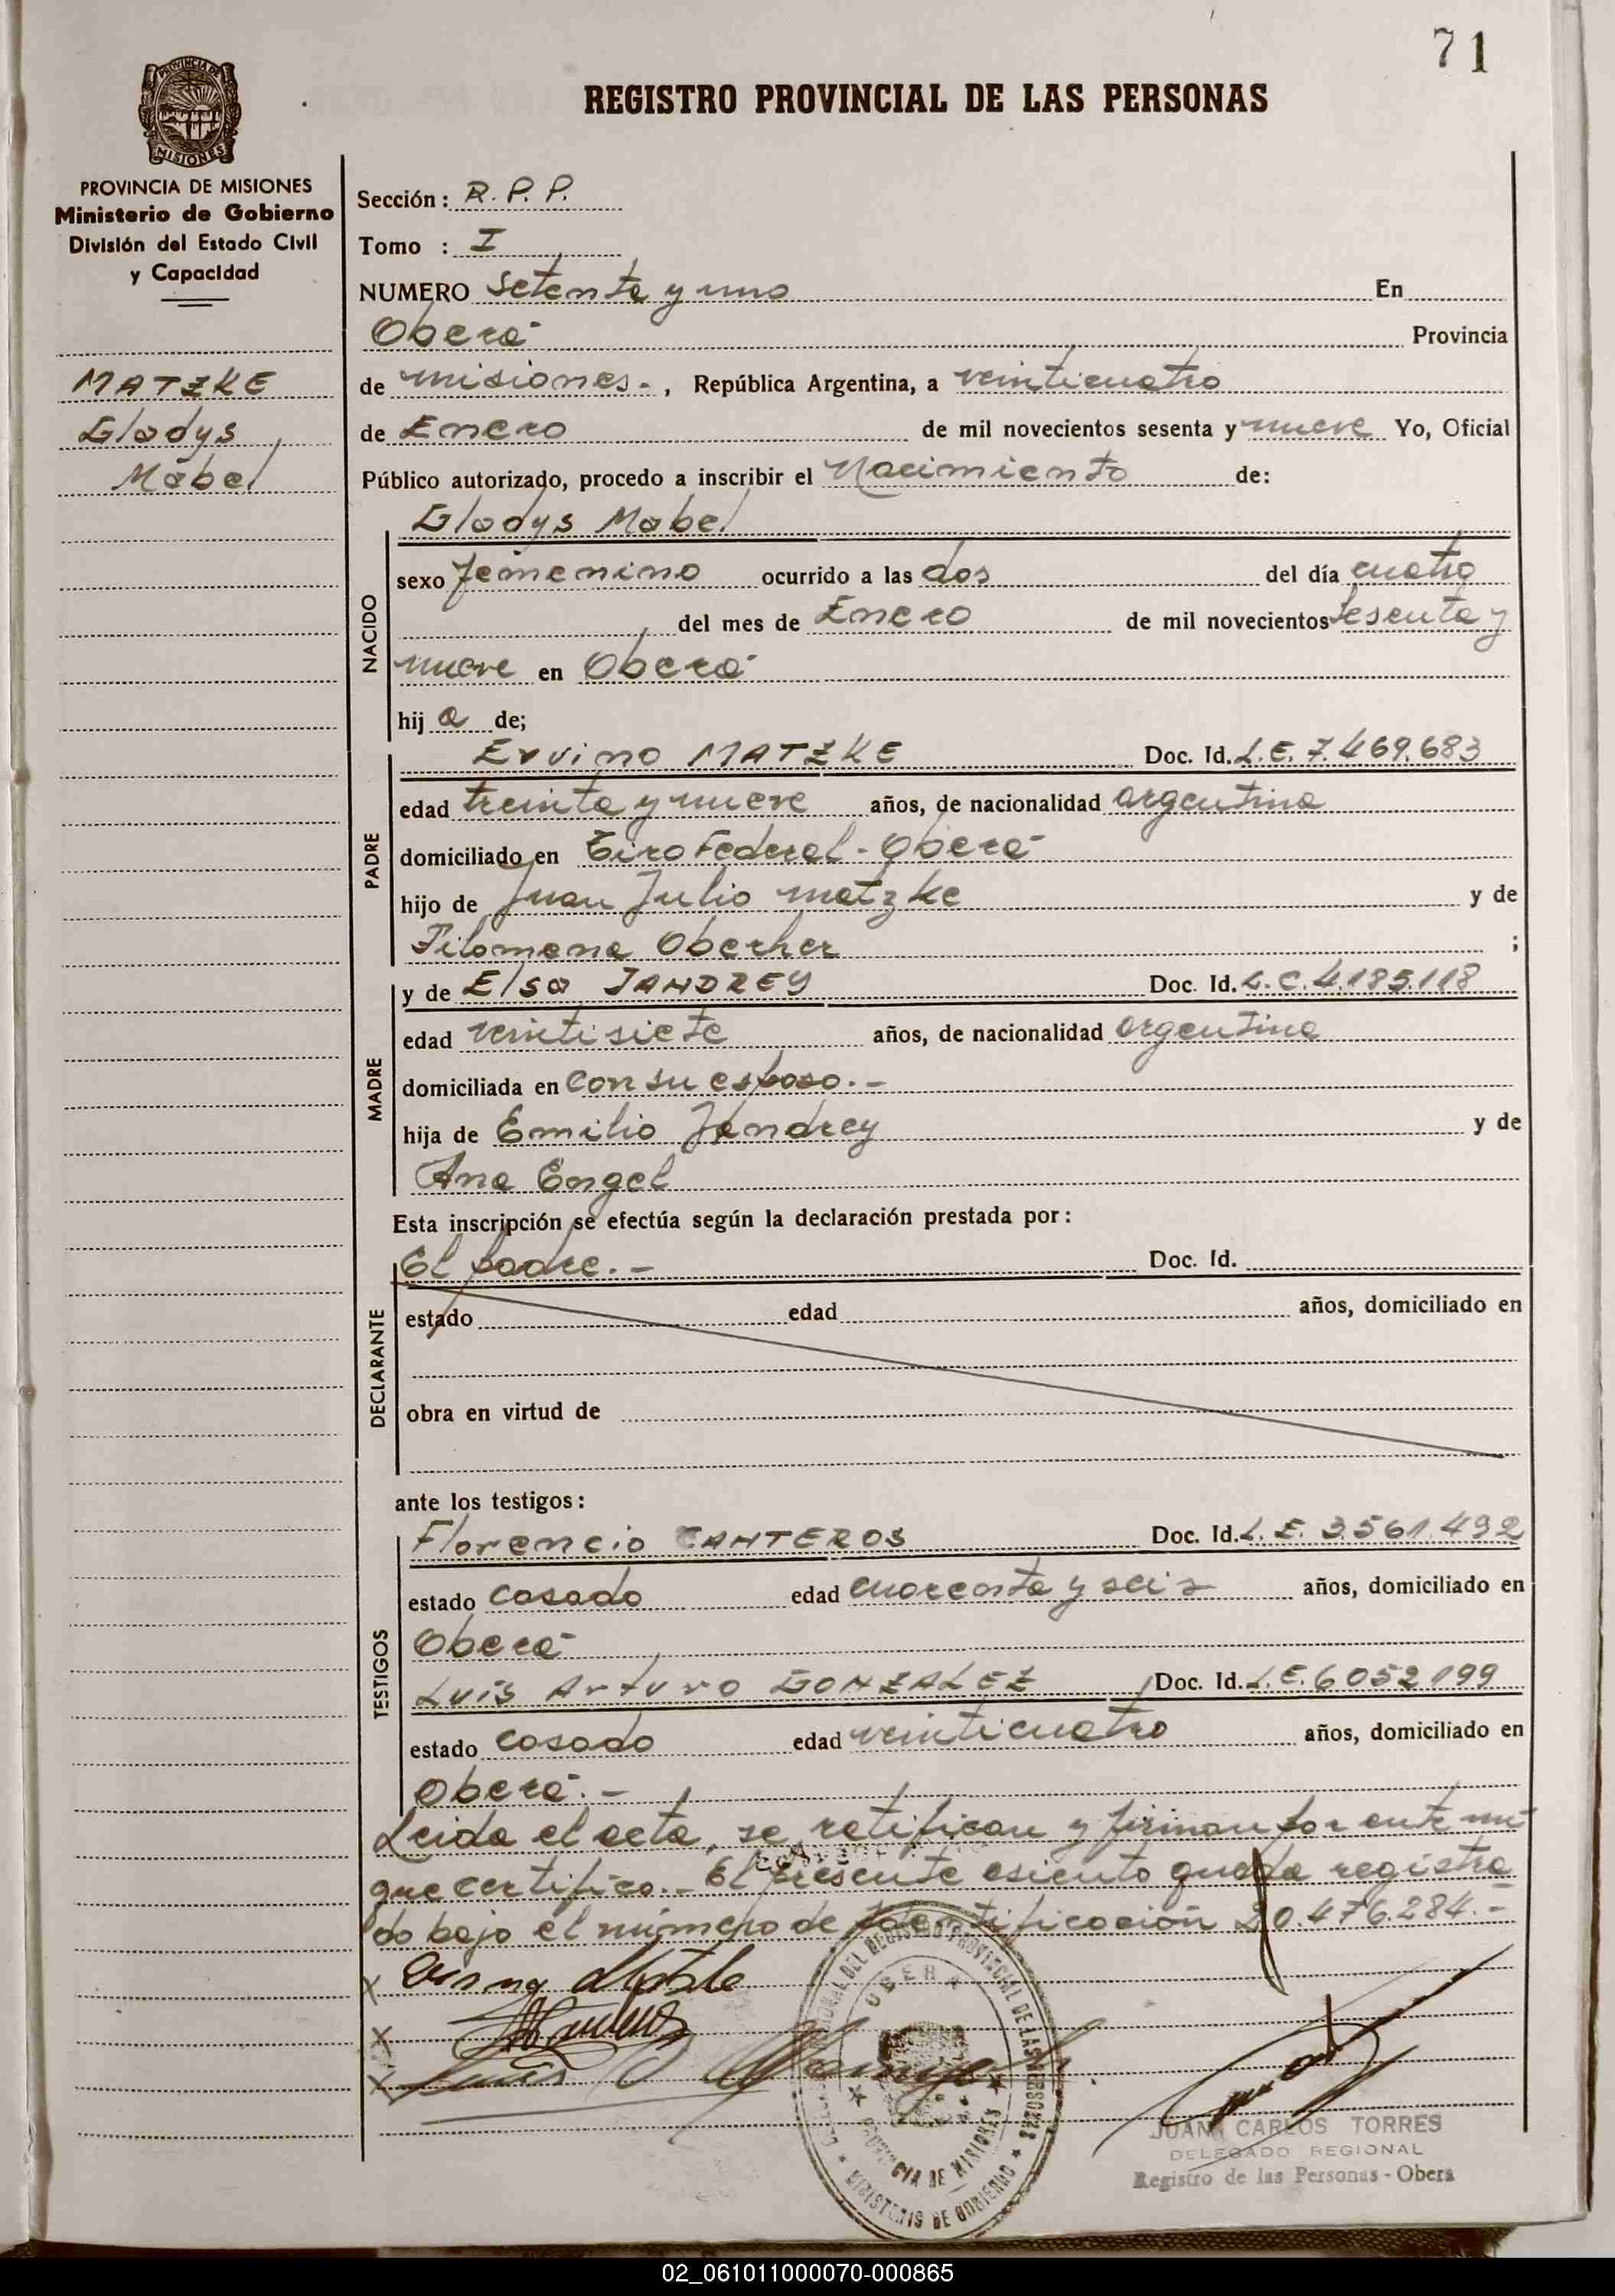 71
REGISTRO PROVINCIAL DE LAS PERSONAS
PROVINCIA DE
MISIONES
PROVINCIA DE MISIONES
Ministerio de Gobierno
División del Estado Civil
y Capacidad
MATZKE
Gladys
Mabel
Sección: R. P. P.
Tomo : I
NUMERO Setenta y uno En
Oberá
Provincia
de misiones.-, República Argentina, a veinticuatro
de Enero de mil novecientos sesenta y nueve Yo, Oficial
Público autorizado, procedo a inscribir el Nacimiento de:
Gladys Mabel
NACIDO
sexo femenino ocurrido a las dos del día cuatro
del mes de Enero de mil novecientos sesenta y
nueve en Oberá
hij a de;
PADRE
Ervino MATZKE Doc. Id. L.E. 7.469.683
edad treinta y nueve años, de nacionalidad argentina
domiciliado en Tiro Federal - Oberá
hijo de Juan Julio Matzke y de
Filomena Oberher ;
MADRE
y de Elsa JANDREY Doc. Id. L.C. 4.185.118
edad veintisiete años, de nacionalidad argentina
domiciliada en con su esposo.-
hija de Emilio Jandrey y de
Ana Engel
Esta inscripción se efectúa según la declaración prestada por:
DECLARANTE
El padre.- Doc. Id.
estado edad años, domiciliado en
obra en virtud de
ante los testigos:
TESTIGOS
Florencio CANTEROS Doc. Id. L. E. 3.561.492
estado casado edad cuarenta y seis años, domiciliado en
Oberá
Luis Arturo GONZALEZ Doc. Id. L.E. 6052199
estado casado edad veinticuatro años, domiciliado en
Oberá.-
Leida el acta, se ratifican y firman por ante mi
que certifico.- El presente asiento queda registra
do bajo el número de identificación 20.476.284.-
OBERA
PROVINCIA DE MISIONES
MINISTERIO DE GOBIERNO
JUAN CARLOS TORRES
DELEGADO REGIONAL
Registro de las Personas - Obera
02_061011000070-000865